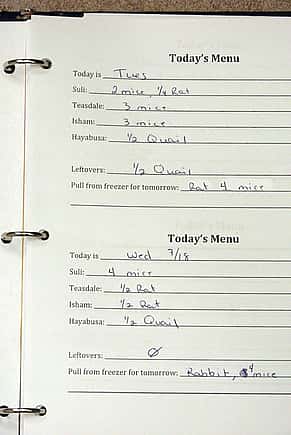 Today's Menu
Today is Tues
Suli: 2 mice, 1/4 Rat
Teasdale: 3 mice
Isham: 3 mice
Hayabusa: 1/2 Quail
Leftovers: 1/2 Quail
Pull from freezer for tomorrow: Rat 4 mice
Today's Menu
Today is Wed 7/18
Suli: 4 mice
Teasdale: 1/2 Rat
Isham: 1/2 Rat
Hayabusa: 1/2 Quail
Leftovers: Ø
Pull from freezer for tomorrow: Rabbit, 4 mice